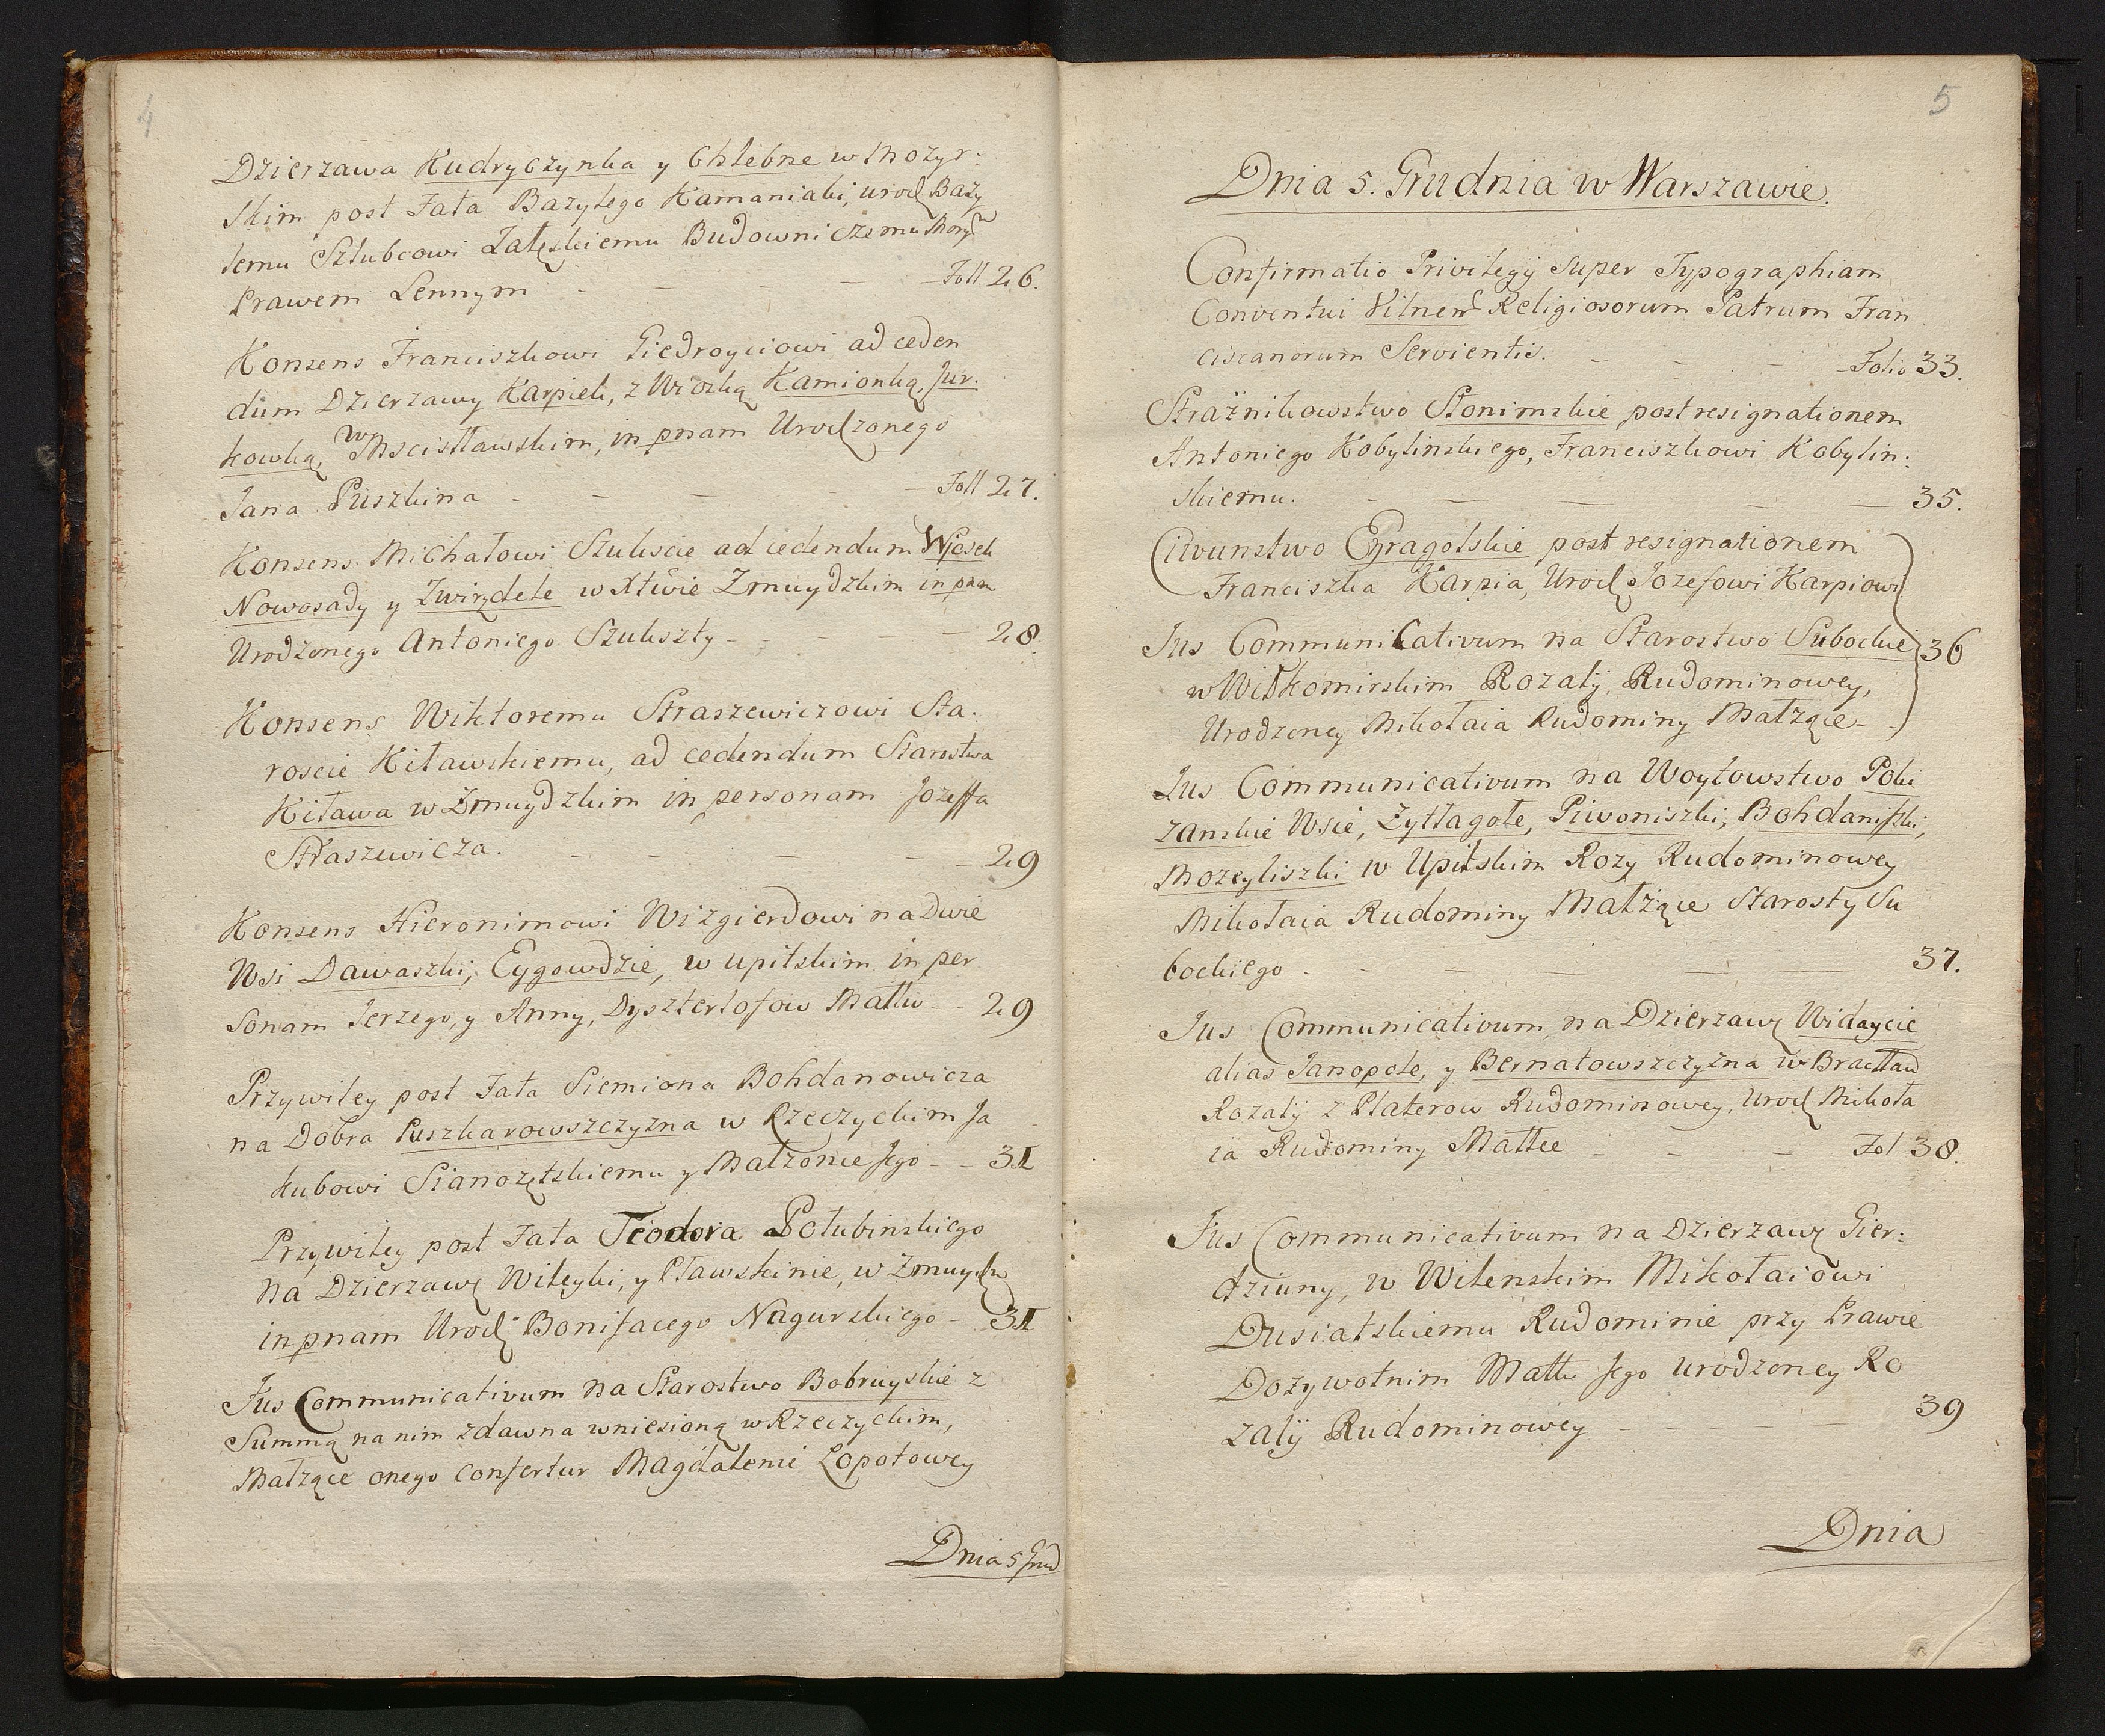 4
Dzierzawa Kudryczynka y Chlebne w Mozyr:
skim post Fata Bazylego Kamanialii, urodz Bazy
lemu Szlubcowi Załęskiemu Budowniczemu
Prawem Lennym - - - - Foll 26.
Konsens Franciszkowi Giedroyciowi ad ceden
dum Dzierzawy Karpiek, z Wioską Kamionką, Jur:
kowką, w Mscisławskim, in pnam Urodzonego
Jana Puszkina - - - - Foll 27.
Konsens Michałowi Szukscie ad cedendum Wjosek
Nowosady y Zwirzdele w Xtwie Zmuydzkim in pnam
Urodzonego Antoniego Szukszty - - - - 28.
Konsens Wiktoremu Straszewiczowi Sta:
roscie Kiławskiemu, ad cedendum Starostwa
Kiława w Zmuydzkim in personam Jozeffa
Straszewicza. - - - - 29
Konsens Hieronimowi Wizgierdowi na Dwie
Wsi Dawaszki, Eygowdzie, w Upitskim in per
sonam Jerzego, y Anny, Dyszterlofow Małłw - - 29
Przywiley post Fata Siemiona Bohdanowicza
na Dobra Puszkarowszczyzna w Rzeczyckim Ja
kubowi Sianozętskiemu y Małzonce Jego - - 31
Przywiley post Fata Teodora Połubinskiego
na Dzierzawę Wileyki, y Pławskinie, w Zmuydz
in pnam Urodz Bonifacego Nagurskiego - 31
Jus Communicativum na Starostwo Bobruyskie z
Summą na nim zdawna wniesioną w Rzeczyckim,
Małzące onego confertur Magdalenie Łopotowey
Dnia 5 Grud
5
Dnia 5. Grudnia w Warszawie.
Confirmatio Privilegij Super Typographiam
Conventui Vilnen Religiosorum Patrum Fran
ciscanorum Servientis. - - - Folio 33.
Strażnikowstwo Słonimskie post resignationem
Antoniego Kobylinskiego, Franciszkowi Kobylin:
skiemu. - - - - 35.
Ciwunstwo Eyragolskie post resignationem
Franciszka Karpia, Urodz Jozefowi Karpiowi
Jus Communicativum na Starostwo Subockie 36
w Wiłkomirskim Rozalij Rudominowey,
Urodzoney Mikołaia Rudominy Małzące -
Jus Communicativum na Woytowstwo Poki
zanskie Wsie, Zyłłagole, Piwoniszki, Bohdaniszki,
Mozeyliszki w Upitskim Rozy Rudominowey
Mikołaia Rudominy Małżące Starosty Su
bockiego - - - - 37.
Jus Communicativum na Dzierzawę Widaycie
alias Janopole, y Bernatowszczyzna w Bracław
Rozalij z Platerow Rudominowey, Urodz Mikoła
ia Rudominy Małłce - - - Fol 38.
Jus Communicativum na Dzierzawę Gier:
dziuny, w Wilenskim Mikołaiowi
Dusiatskiemu Rudominie przy Prawie
Dozywotnim Małłu Jego urodzoney Ro
zalij Rudominowey - - - 39
Dnia